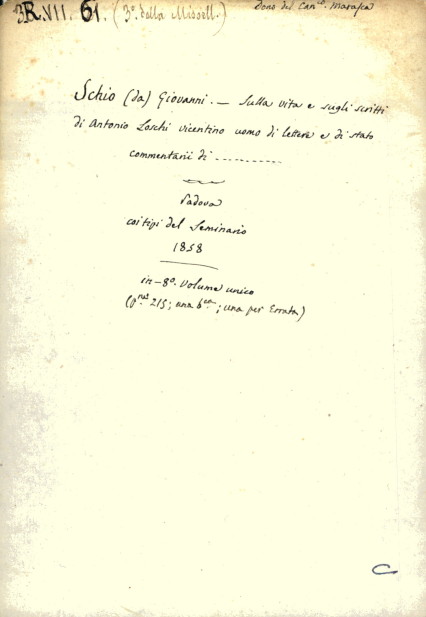 3R.VII. 61. (3ª. della Miscell.)
Dono del Can.co Marasca
Schio (da) Giovanni. — Sulla vita e sugli scritti
di Antonio Loschi vicentino uomo di lettere e di stato
commentarii di ..............
Padova
coi tipi del Seminario
1858
in-8º. Volume unico
(p.ne 215; una b.ca; una per Errata)
C